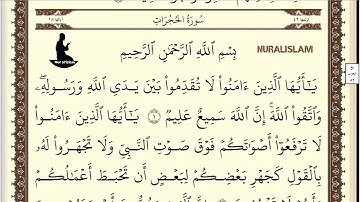 سُورَةُ الحُجُرَاتِ
بِسْمِ اللَّهِ الرَّحْمَٰنِ الرَّحِيمِ
NURALISLAM
Nur al'Islam
يَـٰٓأَيُّهَا ٱلَّذِينَ ءَامَنُوا۟ لَا تُقَدِّمُوا۟ بَيْنَ يَدَىِ ٱللَّهِ وَرَسُولِهِۦ ۖ
وَٱتَّقُوا۟ ٱللَّهَ ۚ إِنَّ ٱللَّهَ سَمِيعٌ عَلِيمٌ ١ يَـٰٓأَيُّهَا ٱلَّذِينَ ءَامَنُوا۟
لَا تَرْفَعُوٓا۟ أَصْوَٰتَكُمْ فَوْقَ صَوْتِ ٱلنَّبِىِّ وَلَا تَجْهَرُوا۟ لَهُۥ
بِٱلْقَوْلِ كَجَهْرِ بَعْضِكُمْ لِبَعْضٍ أَن تَحْبَطَ أَعْمَـٰلُكُمْ